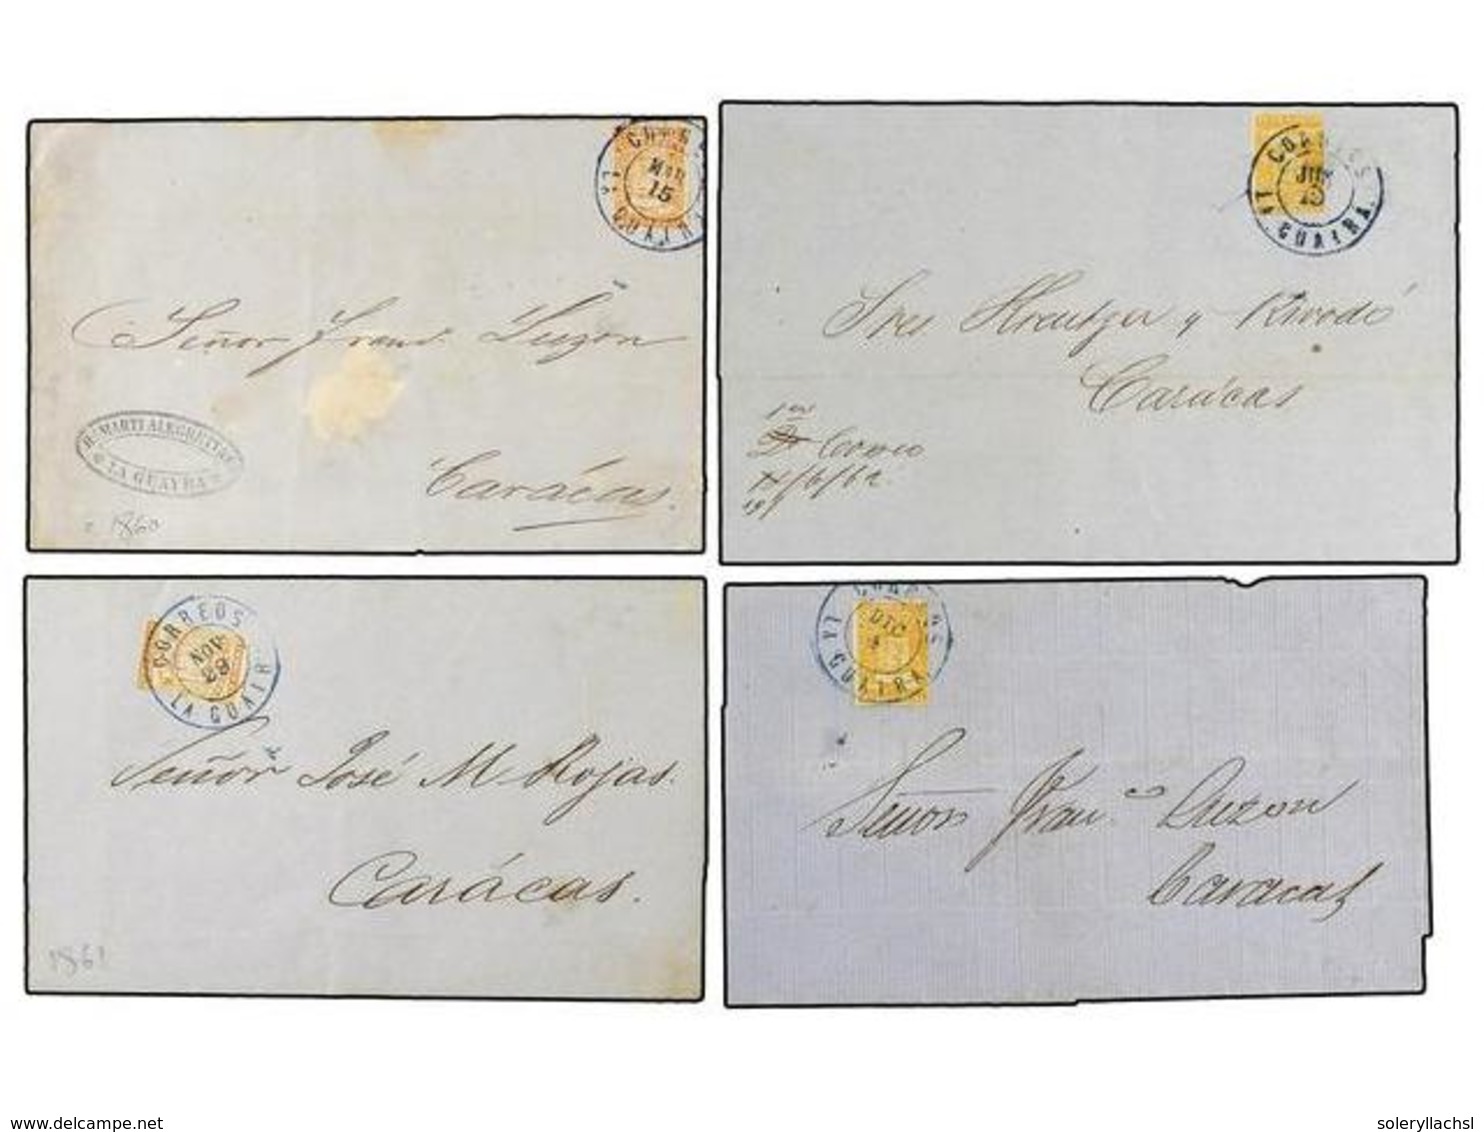 CORREOS
MAR
15
LA GUAIRA
Señor Franco Luzon
Carácas.
H. MARTI ALEGRETT
LA GUAYRA
1860
CORREOS
JUN
LA GUAIRA.
Sres Kreutzer y Rivodó
Carácas
1er
Correo
/6/62
19
CORREOS
NOV
29
LA GUAIRA
Señor José M Rojas.
Carácas.
1861
CORREOS
DIC
LA GUAIRA
Señor Franco Luzon
Caracas
www.delcampe.net
soleryllachsl